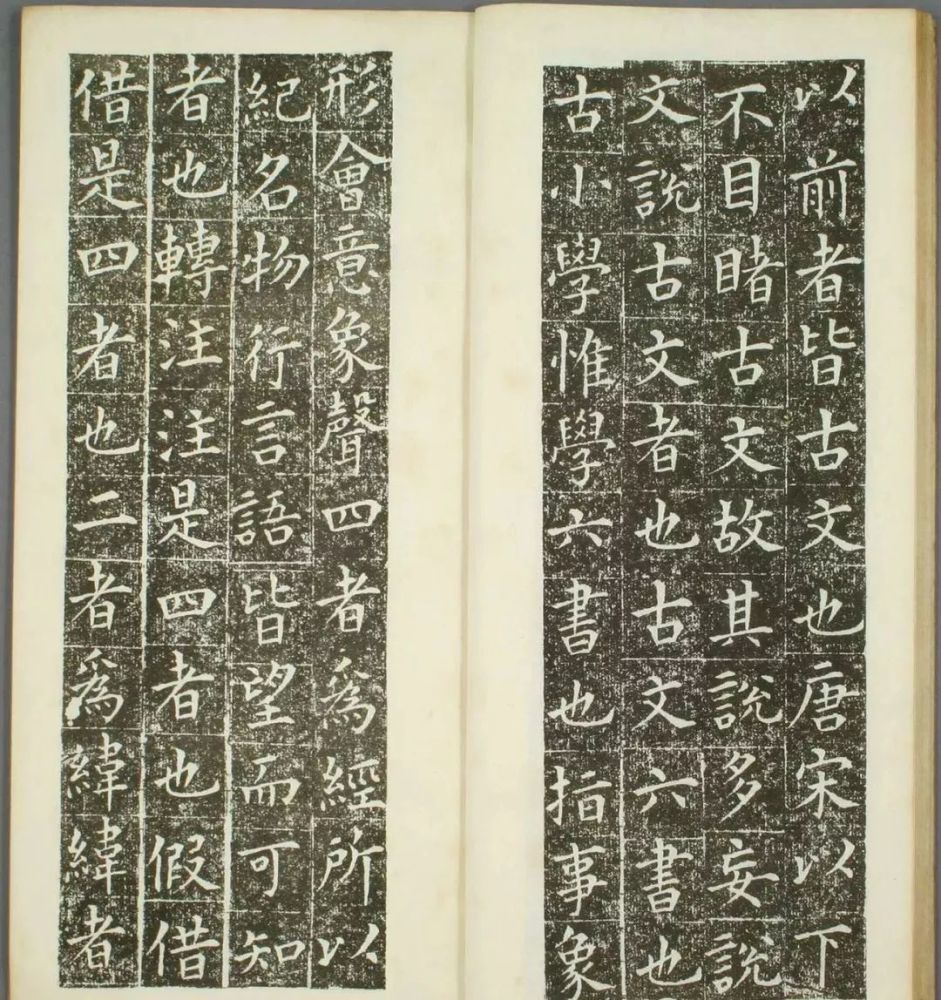 以前者皆古文也唐宋以下
不目睹古文故其説多妄説
文説古文者也古文六書也
古小學惟學六書也指事象
形會意象聲四者爲經所以
紀名物行言語皆望而可知
者也轉注注是四者也假借
借是四者也二者爲緯緯者